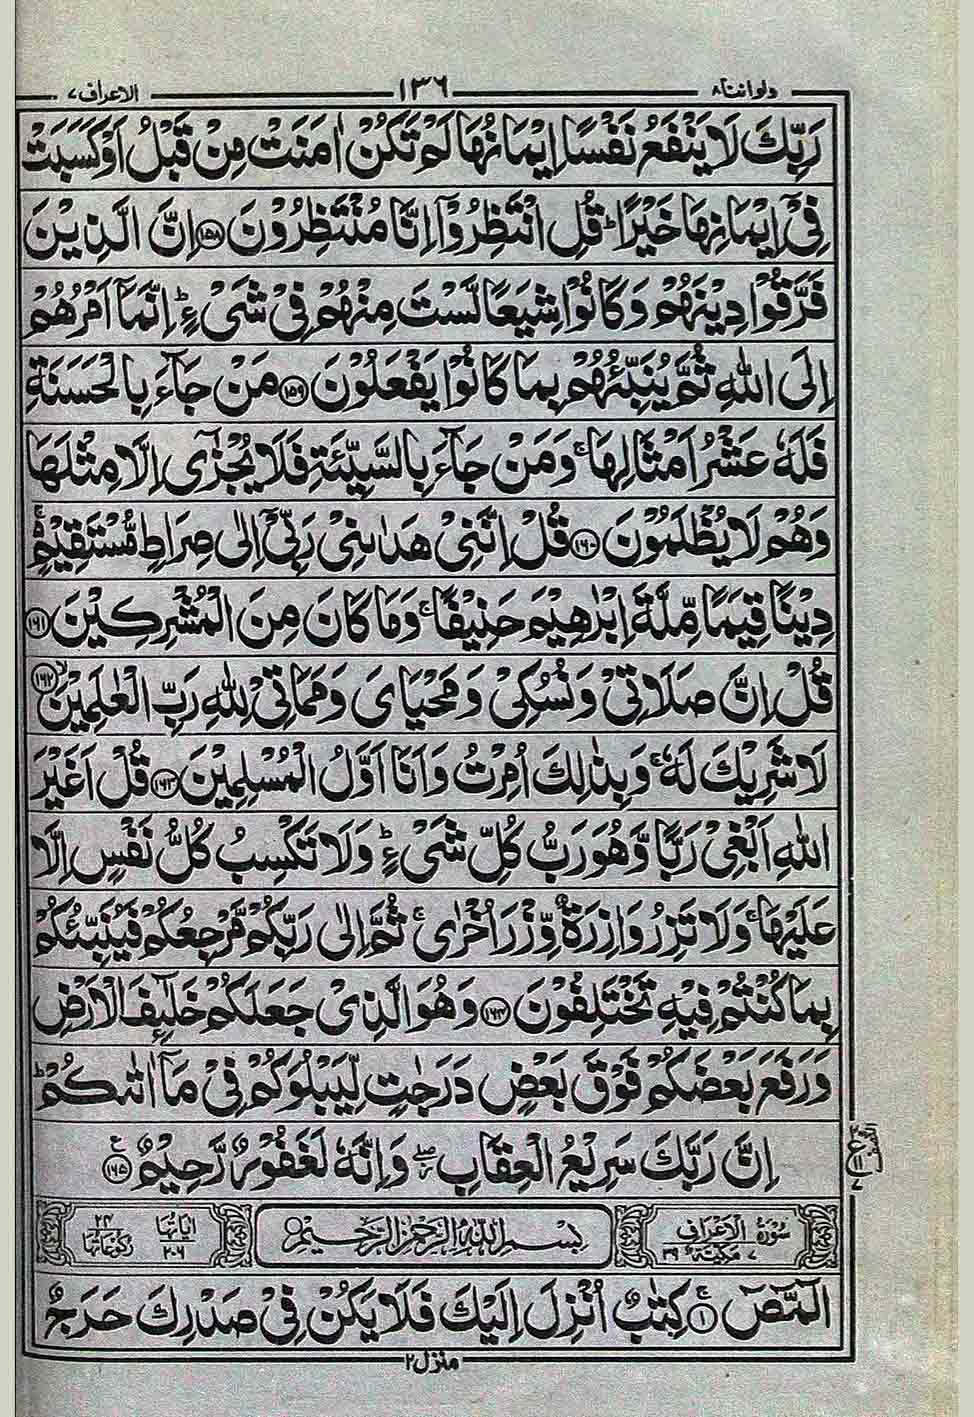 ولواننا ۸ ۱۳۶ الاعراف ۷
رَبِّكَ لَا يَنْفَعُ نَفْسًا اِيْمَانُهَا لَمْ تَكُنْ اٰمَنَتْ مِنْ قَبْلُ اَوْ كَسَبَتْ
فِيْۤ اِيْمَانِهَا خَيْرًا ؕ قُلِ انْتَظِرُوْۤا اِنَّا مُنْتَظِرُوْنَ ۱۵۸ اِنَّ الَّذِيْنَ
فَرَّقُوْا دِيْنَهُمْ وَكَانُوْا شِيَعًا لَّسْتَ مِنْهُمْ فِيْ شَيْءٍ ؕ اِنَّمَاۤ اَمْرُهُمْ
اِلَى اللّٰهِ ثُمَّ يُنَبِّئُهُمْ بِمَا كَانُوْا يَفْعَلُوْنَ ۱۵۹ مَنْ جَآءَ بِالْحَسَنَةِ
فَلَهٗ عَشْرُ اَمْثَالِهَا ۚ وَمَنْ جَآءَ بِالسَّيِّئَةِ فَلَا يُجْزٰۤى اِلَّا مِثْلَهَا
وَهُمْ لَا يُظْلَمُوْنَ ۱۶۰ قُلْ اِنَّنِيْ هَدٰىنِيْ رَبِّيْۤ اِلٰى صِرَاطٍ مُّسْتَقِيْمٍ ۚ
دِيْنًا قِيَمًا مِّلَّةَ اِبْرٰهِيْمَ حَنِيْفًا ۚ وَمَا كَانَ مِنَ الْمُشْرِكِيْنَ ۱۶۱
قُلْ اِنَّ صَلَاتِيْ وَنُسُكِيْ وَمَحْيَايَ وَمَمَاتِيْ لِلّٰهِ رَبِّ الْعٰلَمِيْنَ ۙ ۱۶۲
لَا شَرِيْكَ لَهٗ ۚ وَبِذٰلِكَ اُمِرْتُ وَاَنَا اَوَّلُ الْمُسْلِمِيْنَ ۱۶۳ قُلْ اَغَيْرَ
اللّٰهِ اَبْغِيْ رَبًّا وَّهُوَ رَبُّ كُلِّ شَيْءٍ ؕ وَلَا تَكْسِبُ كُلُّ نَفْسٍ اِلَّا
عَلَيْهَا ۚ وَلَا تَزِرُ وَازِرَةٌ وِّزْرَ اُخْرٰى ۚ ثُمَّ اِلٰى رَبِّكُمْ مَّرْجِعُكُمْ فَيُنَبِّئُكُمْ
بِمَا كُنْتُمْ فِيْهِ تَخْتَلِفُوْنَ ۱۶۴ وَهُوَ الَّذِيْ جَعَلَكُمْ خَلٰٓئِفَ الْاَرْضِ
وَرَفَعَ بَعْضَكُمْ فَوْقَ بَعْضٍ دَرَجٰتٍ لِّيَبْلُوَكُمْ فِيْ مَاۤ اٰتٰىكُمْ ؕ
اِنَّ رَبَّكَ سَرِيْعُ الْعِقَابِ ۖ وَاِنَّهٗ لَغَفُوْرٌ رَّحِيْمٌ ۱۶۵ ع
سُوْرَةُ الْاَعْرَافِ ۷ مَكِّيَّةٌ ۳۹ بِسْمِ اللّٰهِ الرَّحْمٰنِ الرَّحِيْمِ اٰيَاتُهَا ۲۰۶ رُكُوْعَاتُهَا ۲۴
الٓمّٓصٓ ۚ ۱ كِتٰبٌ اُنْزِلَ اِلَيْكَ فَلَا يَكُنْ فِيْ صَدْرِكَ حَرَجٌ
منزل ۲